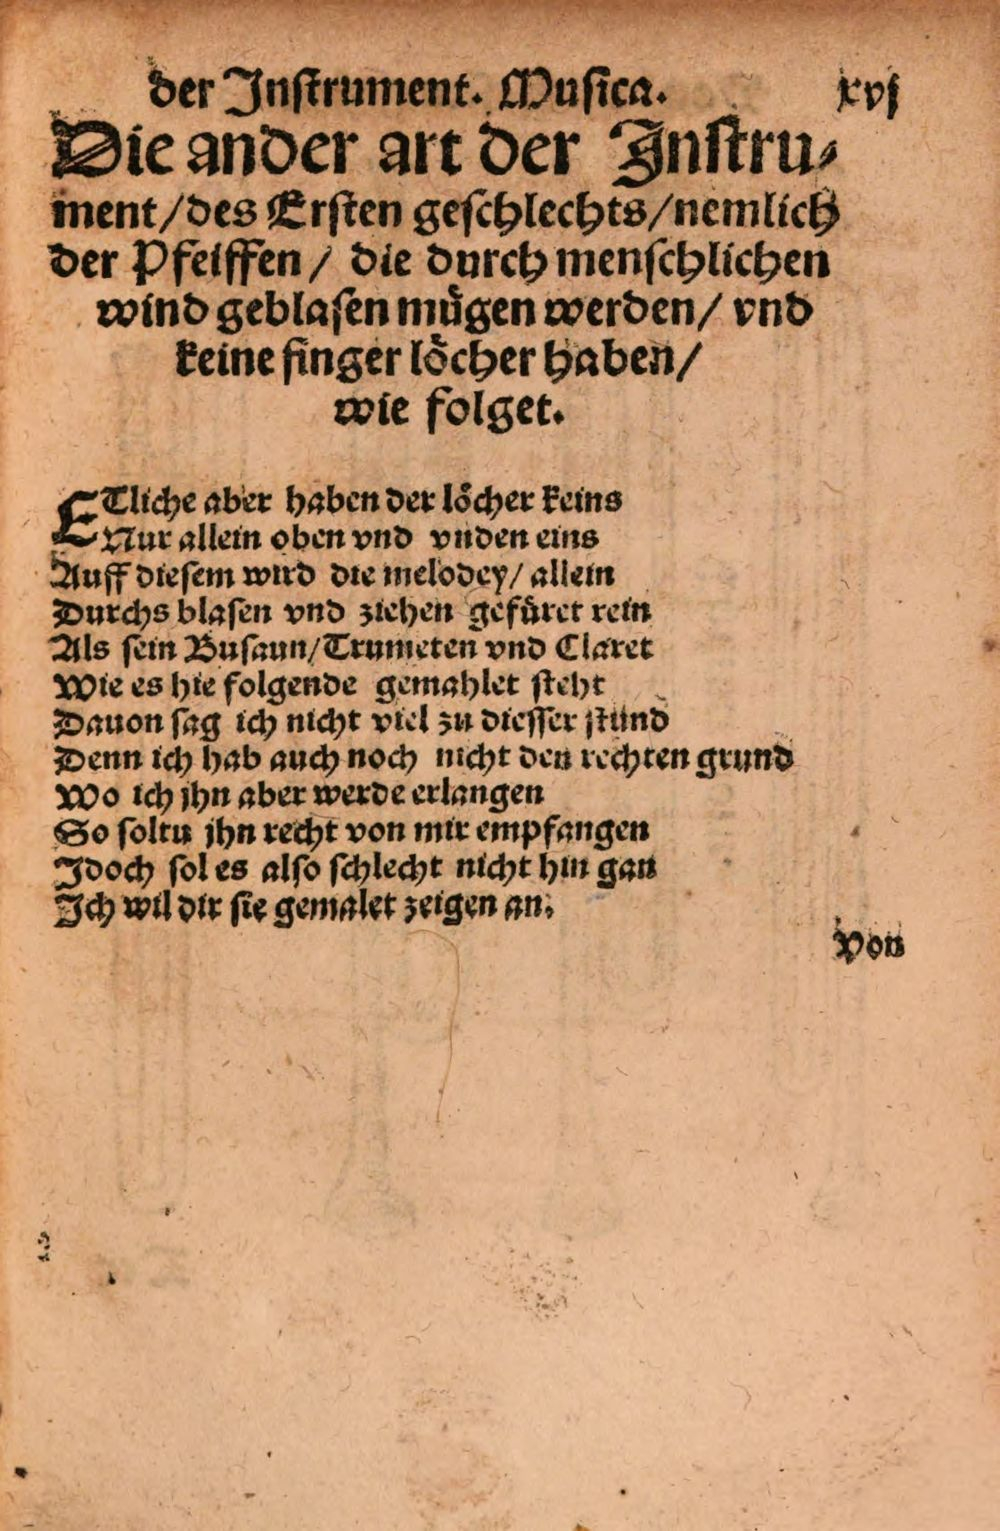 der Jnſtrument. Muſica. xvj
Die ander art der Jnſtru⸗
ment/des Erſten geſchlechts/nemlich
der Pfeiffen/ die durch menſchlichen
wind geblaſen muͤgen werden/ vnd
keine finger loͤcher haben/
wie folget.
ETliche aber haben der loͤcher keins
Nur allein oben vnd vnden eins
Auff dieſem wird die melodey/ allein
Durchs blaſen vnd ziehen gefuͤret rein
Als ſein Buſaun/Trumeten vnd Claret
Wie es hie folgende gemahlet ſteht
Dauon ſag ich nicht viel zu dieſſer ſtund
Denn ich hab auch noch nicht den rechten grund
Wo ich jhn aber werde erlangen
So ſoltu jhn recht von mir empfangen
Jdoch ſol es alſo ſchlecht nicht hin gan
Jch wil dir ſie gemalet zeigen an.
Von